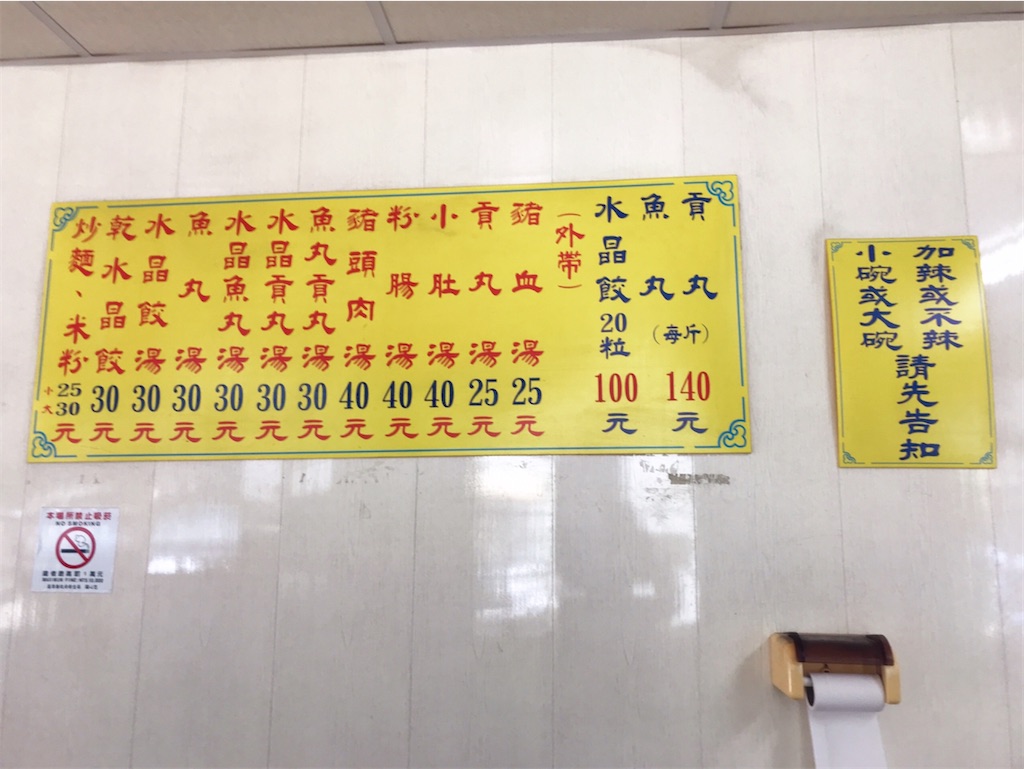 豬血湯25元
貢丸湯25元
小肚湯40元
粉腸湯40元
豬頭肉湯40元
魚丸貢丸湯30元
水晶貢丸湯30元
水晶魚丸湯30元
魚丸湯30元
水晶餃湯30元
乾水晶餃30元
炒麵、米粉 小25 大30元
貢丸
魚丸
(每斤)
140元
水晶餃20粒100元
(外帶)
加辣或不辣
小碗或大碗
請先告知
本場所禁止吸菸
NO SMOKING